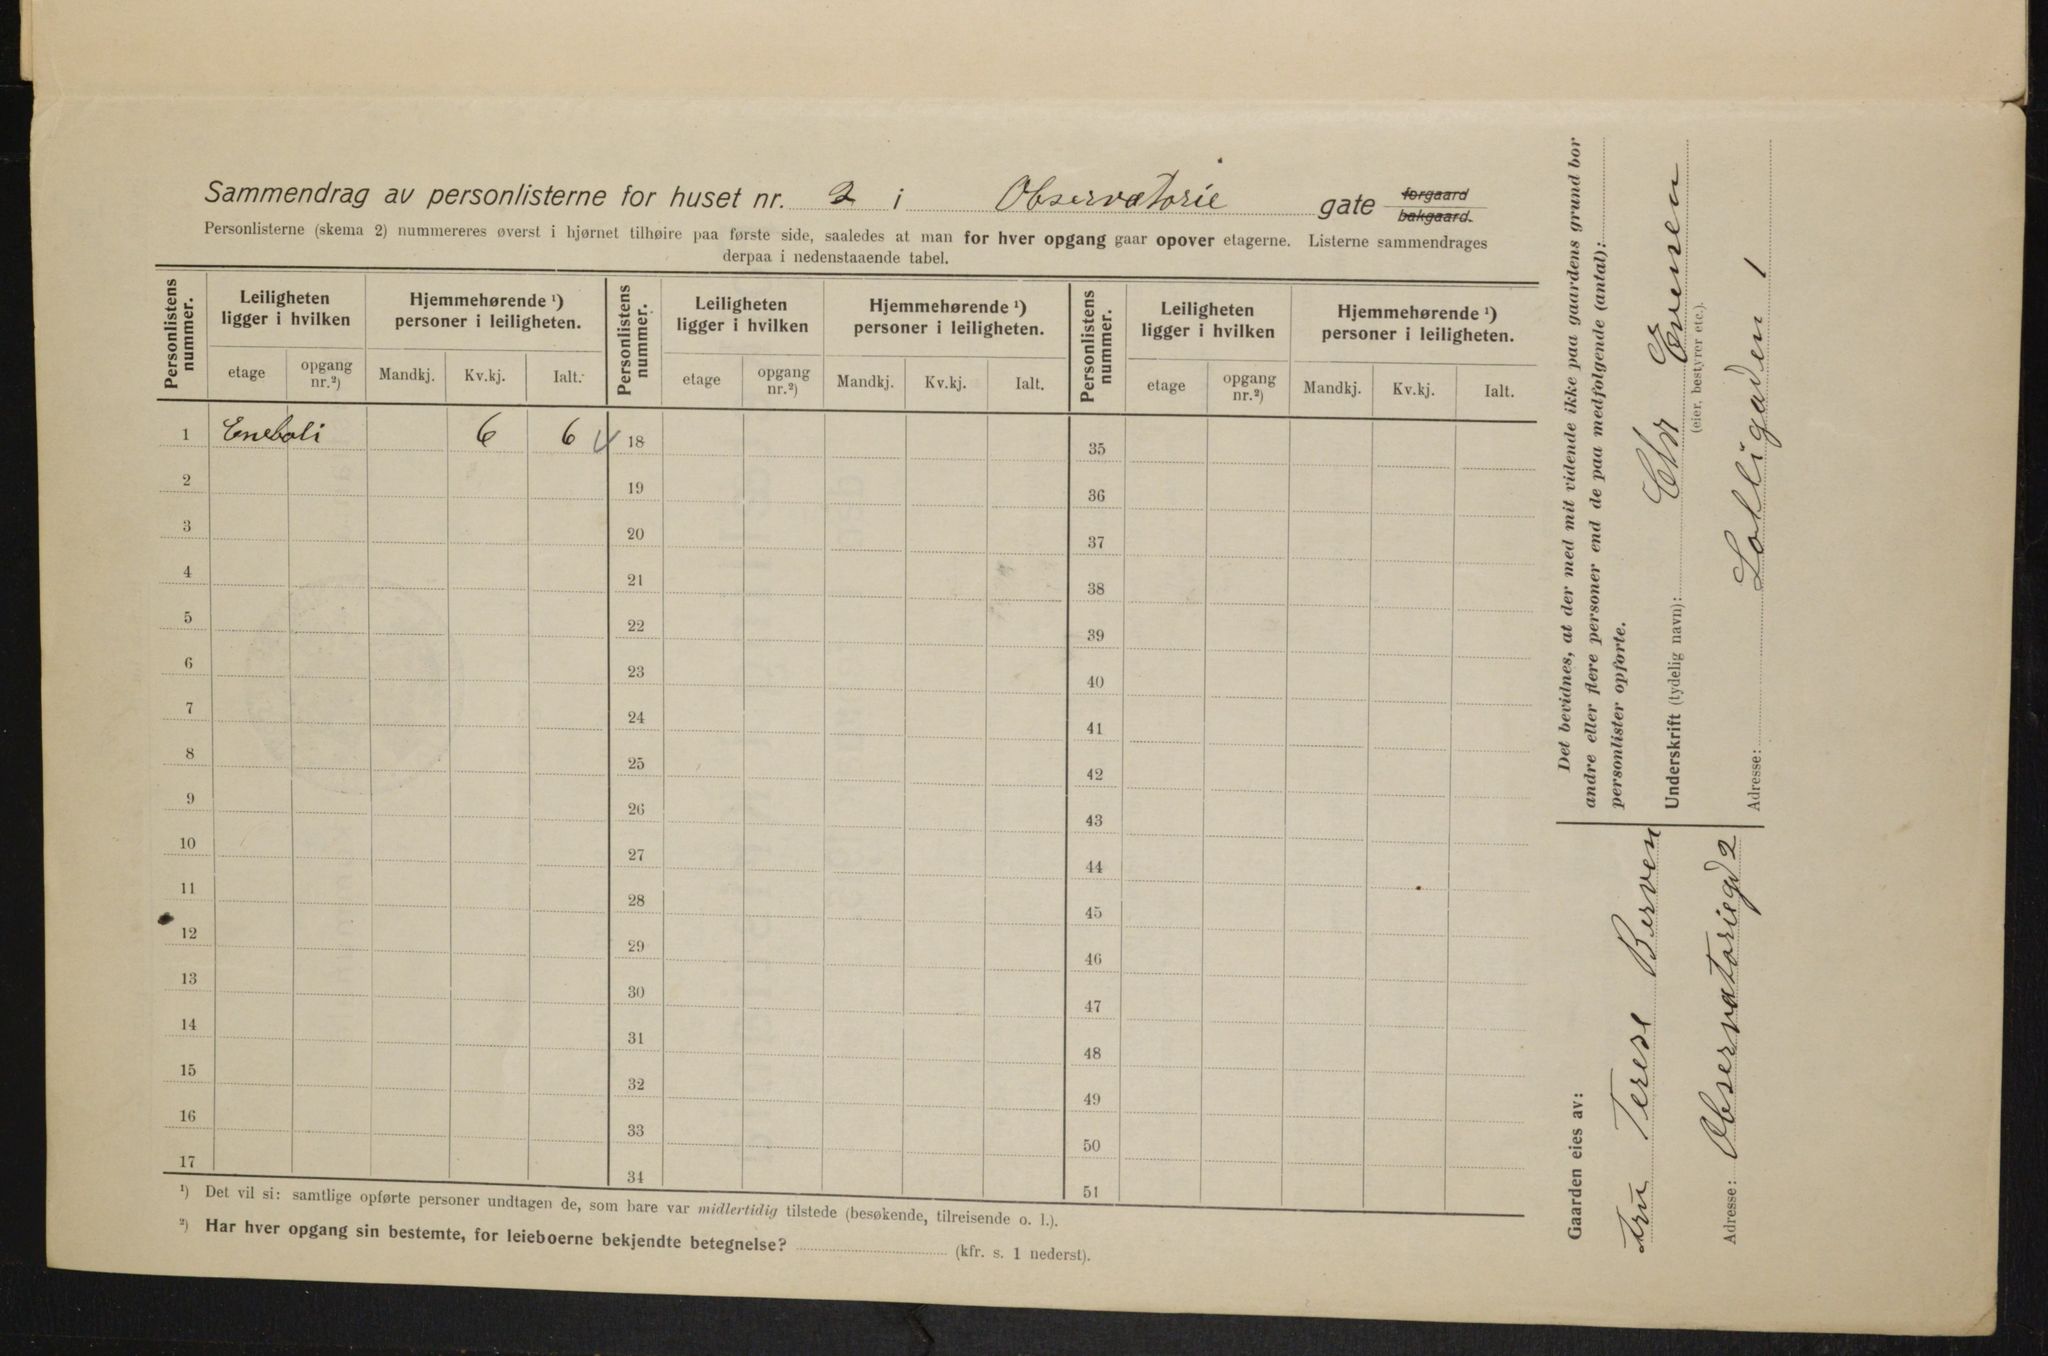 Sammendrag av personlisterne for huset nr. 2 i Observatorie gate forgaard bakgaard.
Personlisterne (skema 2) nummereres øverst i hjørnet tilhøire paa første side, saaledes at man for hver opgang gaar opover etagerne. Listerne sammendrages
derpaa i nedenstaaende tabel.
Personlistens nummer. Leiligheten ligger i hvilken Hjemmehørende ¹) personer i leiligheten. Personlistens nummer. Leiligheten ligger i hvilken Hjemmehørende ¹) personer i leiligheten. Personlistens nummer. Leiligheten ligger i hvilken Hjemmehørende ¹) personer i leiligheten.
etage opgang nr.²) Mandkj. Kv.kj. Ialt. etage opgang nr.²) Mandkj. Kv.kj. Ialt. etage opgang nr.²) Mandkj. Kv.kj. Ialt.
1 Eneboli 6 6 18 35
2 19 36
3 20 37
4 21 38
5 22 39
6 23 40
7 24 41
8 25 42
9 26 43
10 27 44
11 28 45
12 29 46
13 30 47
14 31 48
15 32 49
16 33 50
17 34 51
¹) Det vil si: samtlige opførte personer undtagen de, som bare var midlertidig tilstede (besøkende, tilreisende o. l.).
²) Har hver opgang sin bestemte, for leieboerne bekjendte betegnelse? (kfr. s. 1 nederst).
Det bevidnes, at der med mit vidende ikke paa gaardens grund bor
andre eller flere personer end de paa medfølgende (antal):
personlister opførte.
Underskrift (tydelig navn): Chr
(eier, bestyrer etc.).
Adresse: 1
Gaarden eies av:
Fru Terese Berven
Adresse: Observatoriegd 2